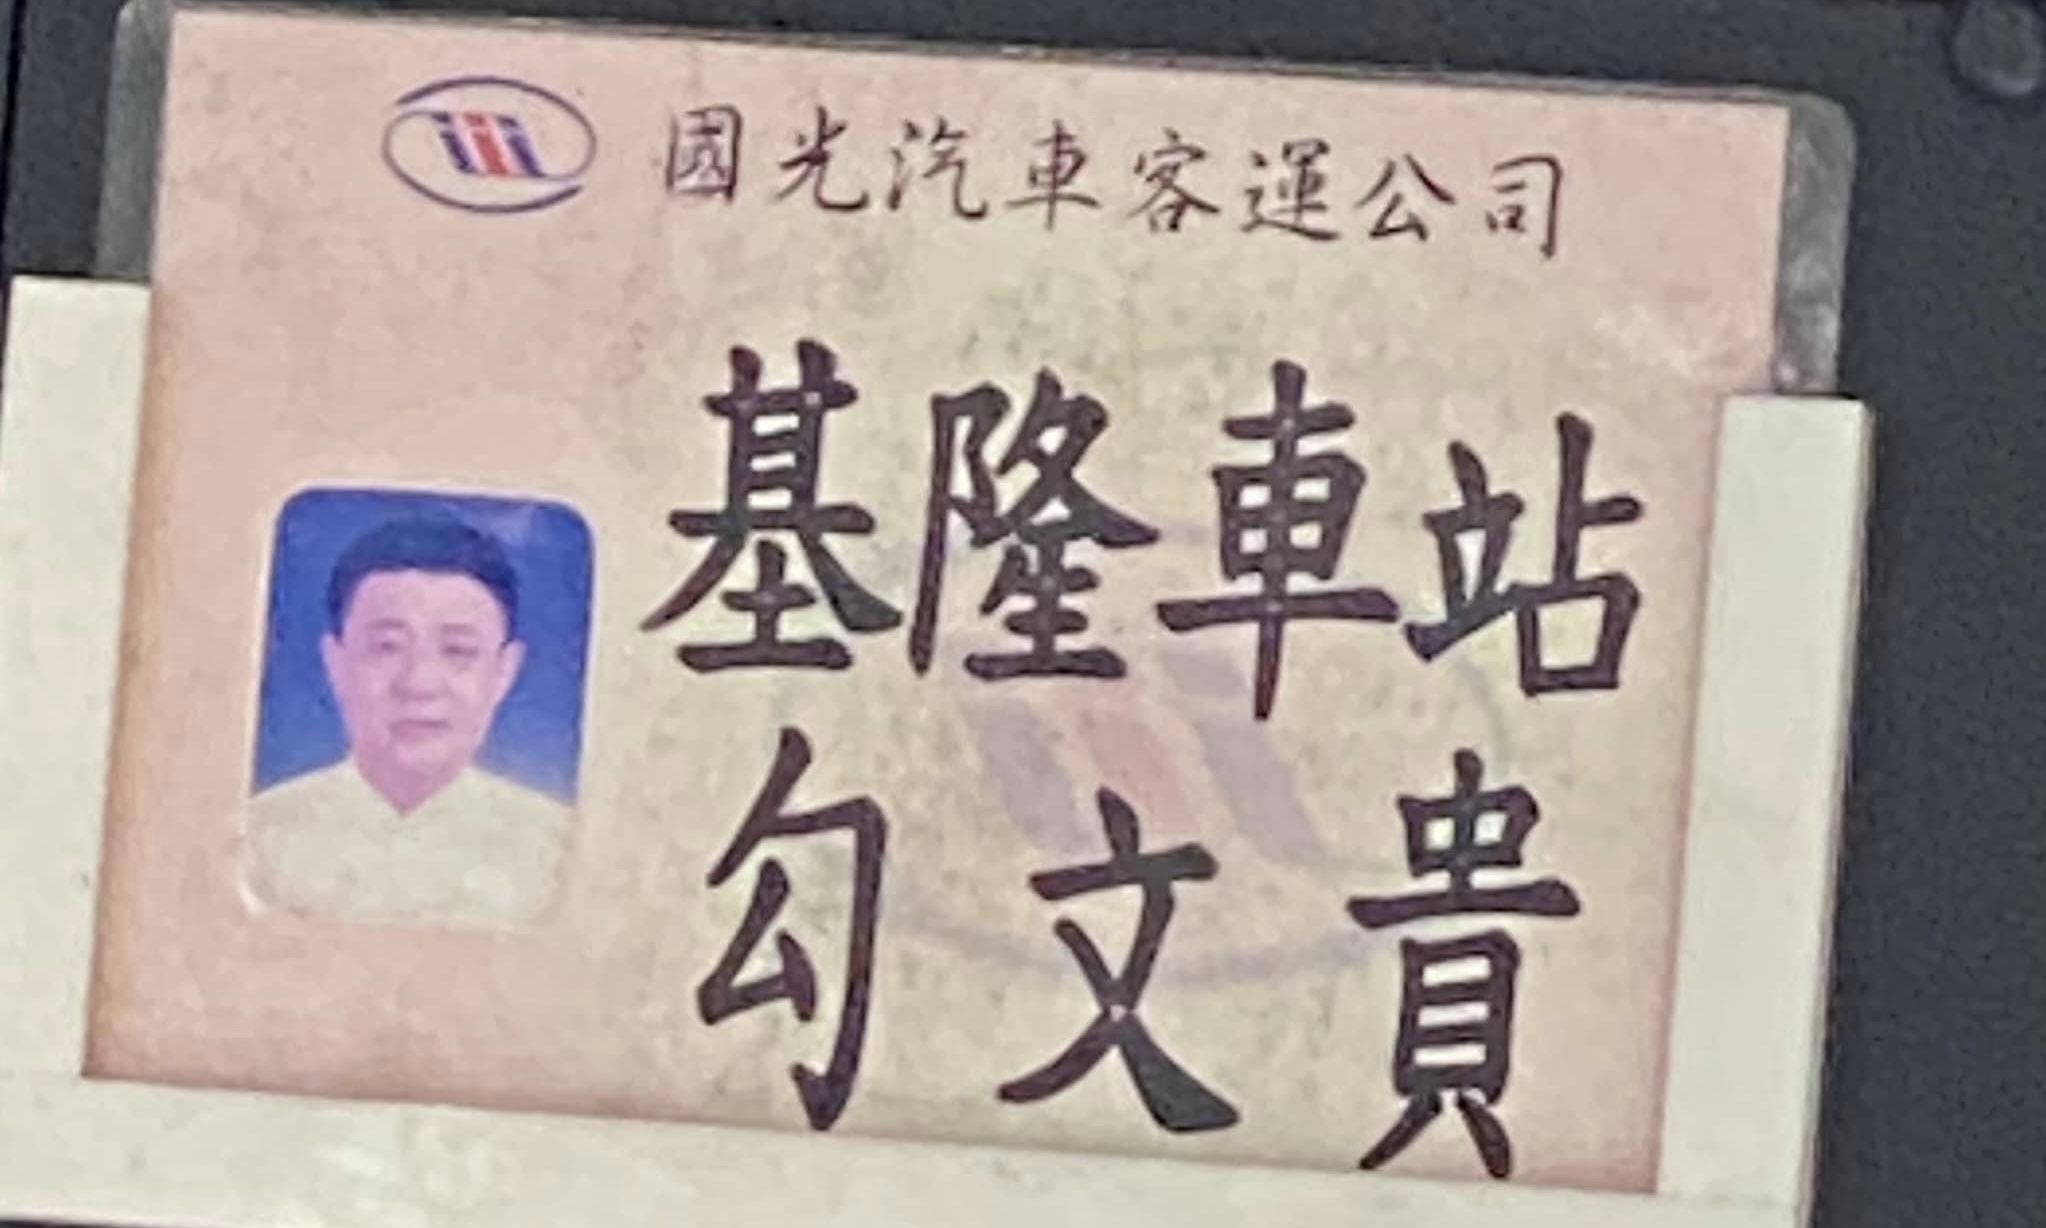 國光汽車客運公司
基隆車站
勾文貴